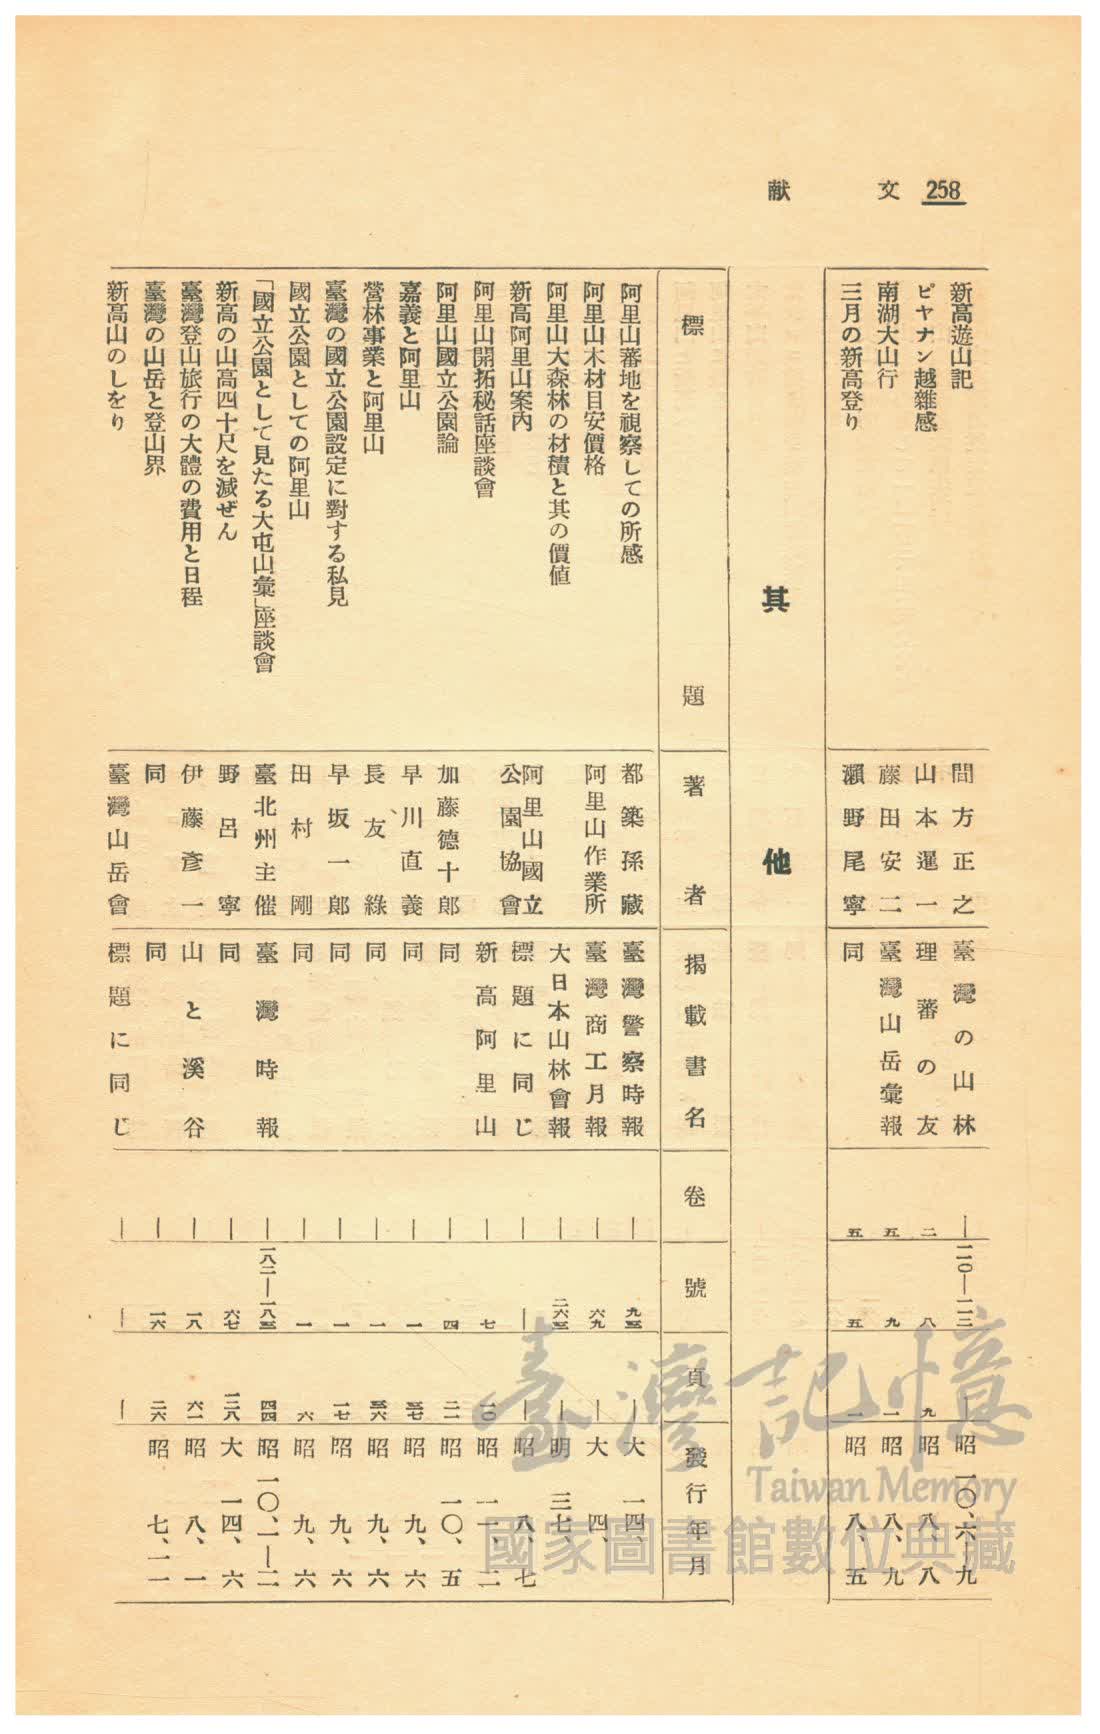 258 文献
新高遊山記 間方正之 臺灣の山林 ― 一二〇―一二二 昭一〇、六―九
ピヤナン越雜感 山本暹一 理蕃の友 二 八 九 昭八、八
南湖大山行 藤田安二 臺灣山岳彙報 五 九 一 昭八、九
三月の新高登り 瀨野尾寧 同 五 五 一 昭八、五
其他
標題 著者 揭載書名 卷 號 頁 發行年月
阿里山蕃地を視察しての所感 都築孫藏 臺灣警察時報 ― ― 大一四、
阿里山木材目安價格 阿里山作業所 臺灣商工月報 ― 六九 ― 大四、
阿里山大森林の材積と其の價値 大日本山林會報 ― ― 明三七、
新高阿里山案內 阿里山國立公園協會 標題に同じ ― ― ― 昭八、七
阿里山開拓秘話座談會 新高阿里山 ― 七 一〇 昭一一、二
阿里山國立公園論 加藤德十郎 同 ― 四 二二 昭一〇、五
嘉義と阿里山 早川直義 同 ― 一 三七 昭九、六
營林事業と阿里山 長友綠 同 ― 一 三六 昭九、六
臺灣の國立公園設定に對する私見 早坂一郎 同 ― 一 一七 昭九、六
國立公園としての阿里山 田村剛 同 ― 一 六 昭九、六
「國立公園として見たる大屯山彙」座談會 臺北州主催 臺灣時報 ― 一八二―一八三 四四 昭一〇、一―二
新高の山高四十尺を減ぜん 野呂寧 同 ― 六七 一三八 大一四、六
臺灣登山旅行の大體の費用と日程 伊藤彥一 山と溪谷 ― 一八 六一 昭八、一
臺灣の山岳と登山界 同 同 ― 一六 二六 昭七、一一
新高山のしをり 臺灣山岳會 標題に同じ ― ― ―
臺灣記憶
Taiwan Memory
國家圖書館數位典藏